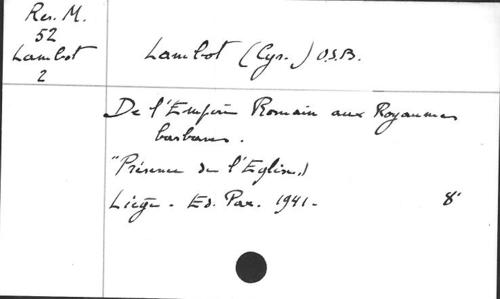 Res. M.
52
Lambot
2
Lambot (Cyr.) O.S.B.
De l'Empire Romain aux Royaumes
barbares.
"Présence de l'Eglise")
Liége - Ed. Par. 1941 - 8°